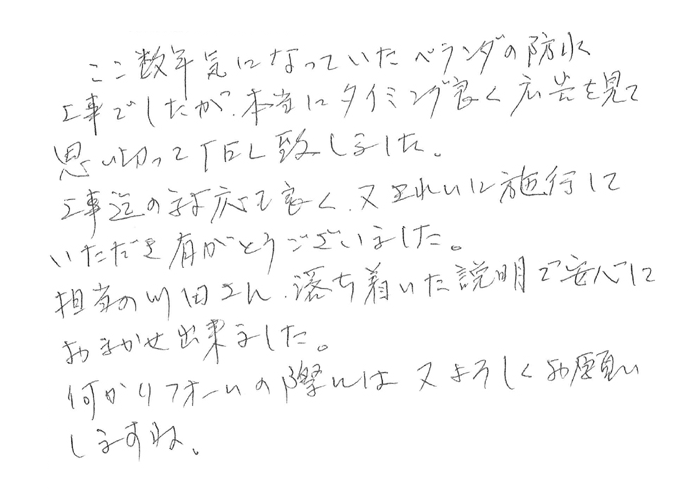 ここ数年気になっていたベランダの防水
工事でしたが、本当にタイミング良く広告を見て
思い切ってTEL致しました。
工事迄の対応も良く、又きれいに施行して
いただき有がとうございました。
担当の川田さん、落ち着いた説明で安心して
おまかせ出来ました。
何かリフォームの際には又よろしくお願い
しますね。